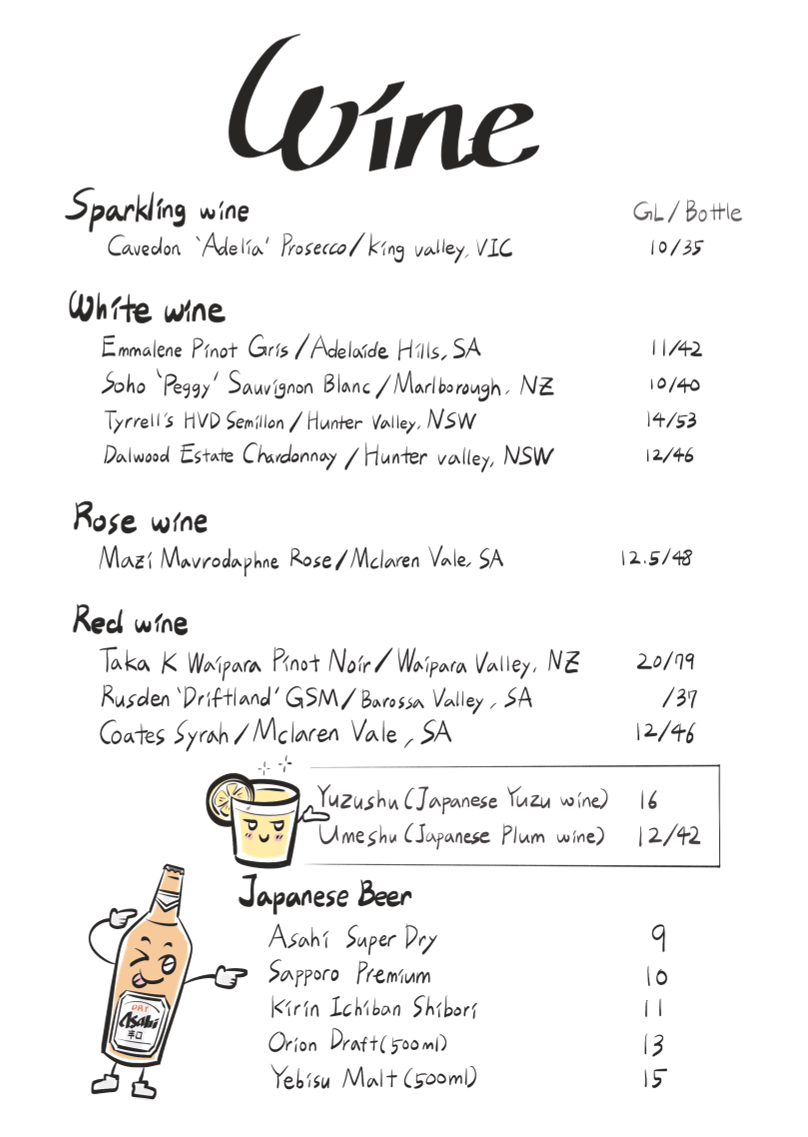 Wine
Sparkling wine GL/Bottle
Cavedon 'Adelia' Prosecco/King valley, VIC 10/35
White wine
Emmalene Pinot Gris/Adelaide Hills, SA 11/42
Soho 'Peggy' Sauvignon Blanc/Marlborough, NZ 10/40
Tyrrell's HVD Semillon/Hunter Valley, NSW 14/53
Dalwood Estate Chardonnay/Hunter valley, NSW 12/46
Rose wine
Mazi Mavrodaphne Rose/Mclaren Vale, SA 12.5/48
Red wine
Taka K Waipara Pinot Noir/Waipara Valley, NZ 20/79
Rusden 'Driftland' GSM/Barossa Valley, SA /37
Coates Syrah/Mclaren Vale, SA 12/46
Yuzushu (Japanese Yuzu wine) 16
Umeshu (Japanese Plum wine) 12/42
Japanese Beer
Asahi Super Dry 9
Sapporo Premium 10
Kirin Ichiban Shibori 11
Orion Draft (500ml) 13
Yebisu Malt (500ml) 15
DRY
Asahi
辛口